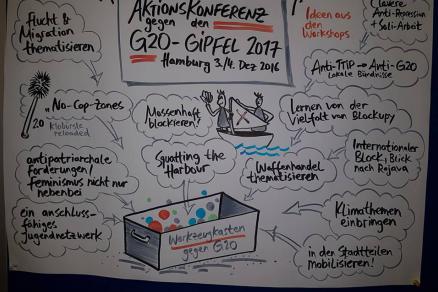 AKTIONSKONFERENZ
gegen den
G20-GIPFEL 2017
Hamburg 3./4. Dez 2016
Ideen aus
den
Workshops
Clevere
Anti-Repression
+ Soli-Arbeit
Flucht &
Migration
thematisieren
Anti-TTIP → Anti-G20
Lokale Bündnisse
"No-Cop-Zones
2.0
Klobürste
reloaded
Massenhaft
blockieren!
Lernen von der
Vielfalt von Blockupy
antipatriarchale
forderungen/
feminismus nicht nur
nebenbei
Squatting the
Harbour
Waffenhandel
thematisieren
Internationaler
Block, Blick
nach Rojava
ein anschluss-
fähiges
Jugendnetzwerk
Werkzeugkasten
gegen G20
Klimathemen
einbringen
in den Stadtteilen
mobilisieren!